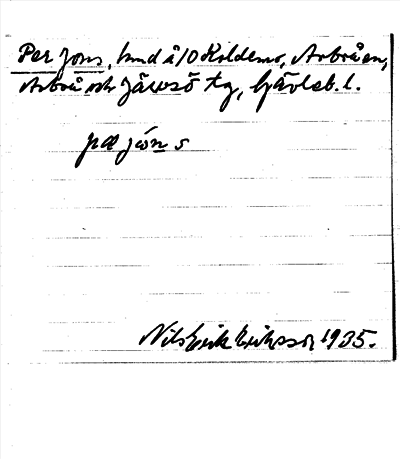 Per Jons, hmd å 10 Koldemo, Arbrå sn,
Arbrå och Järvsö tg, Gävleb. l.
pæ jón s
Nils Erik Eriksson 1935.